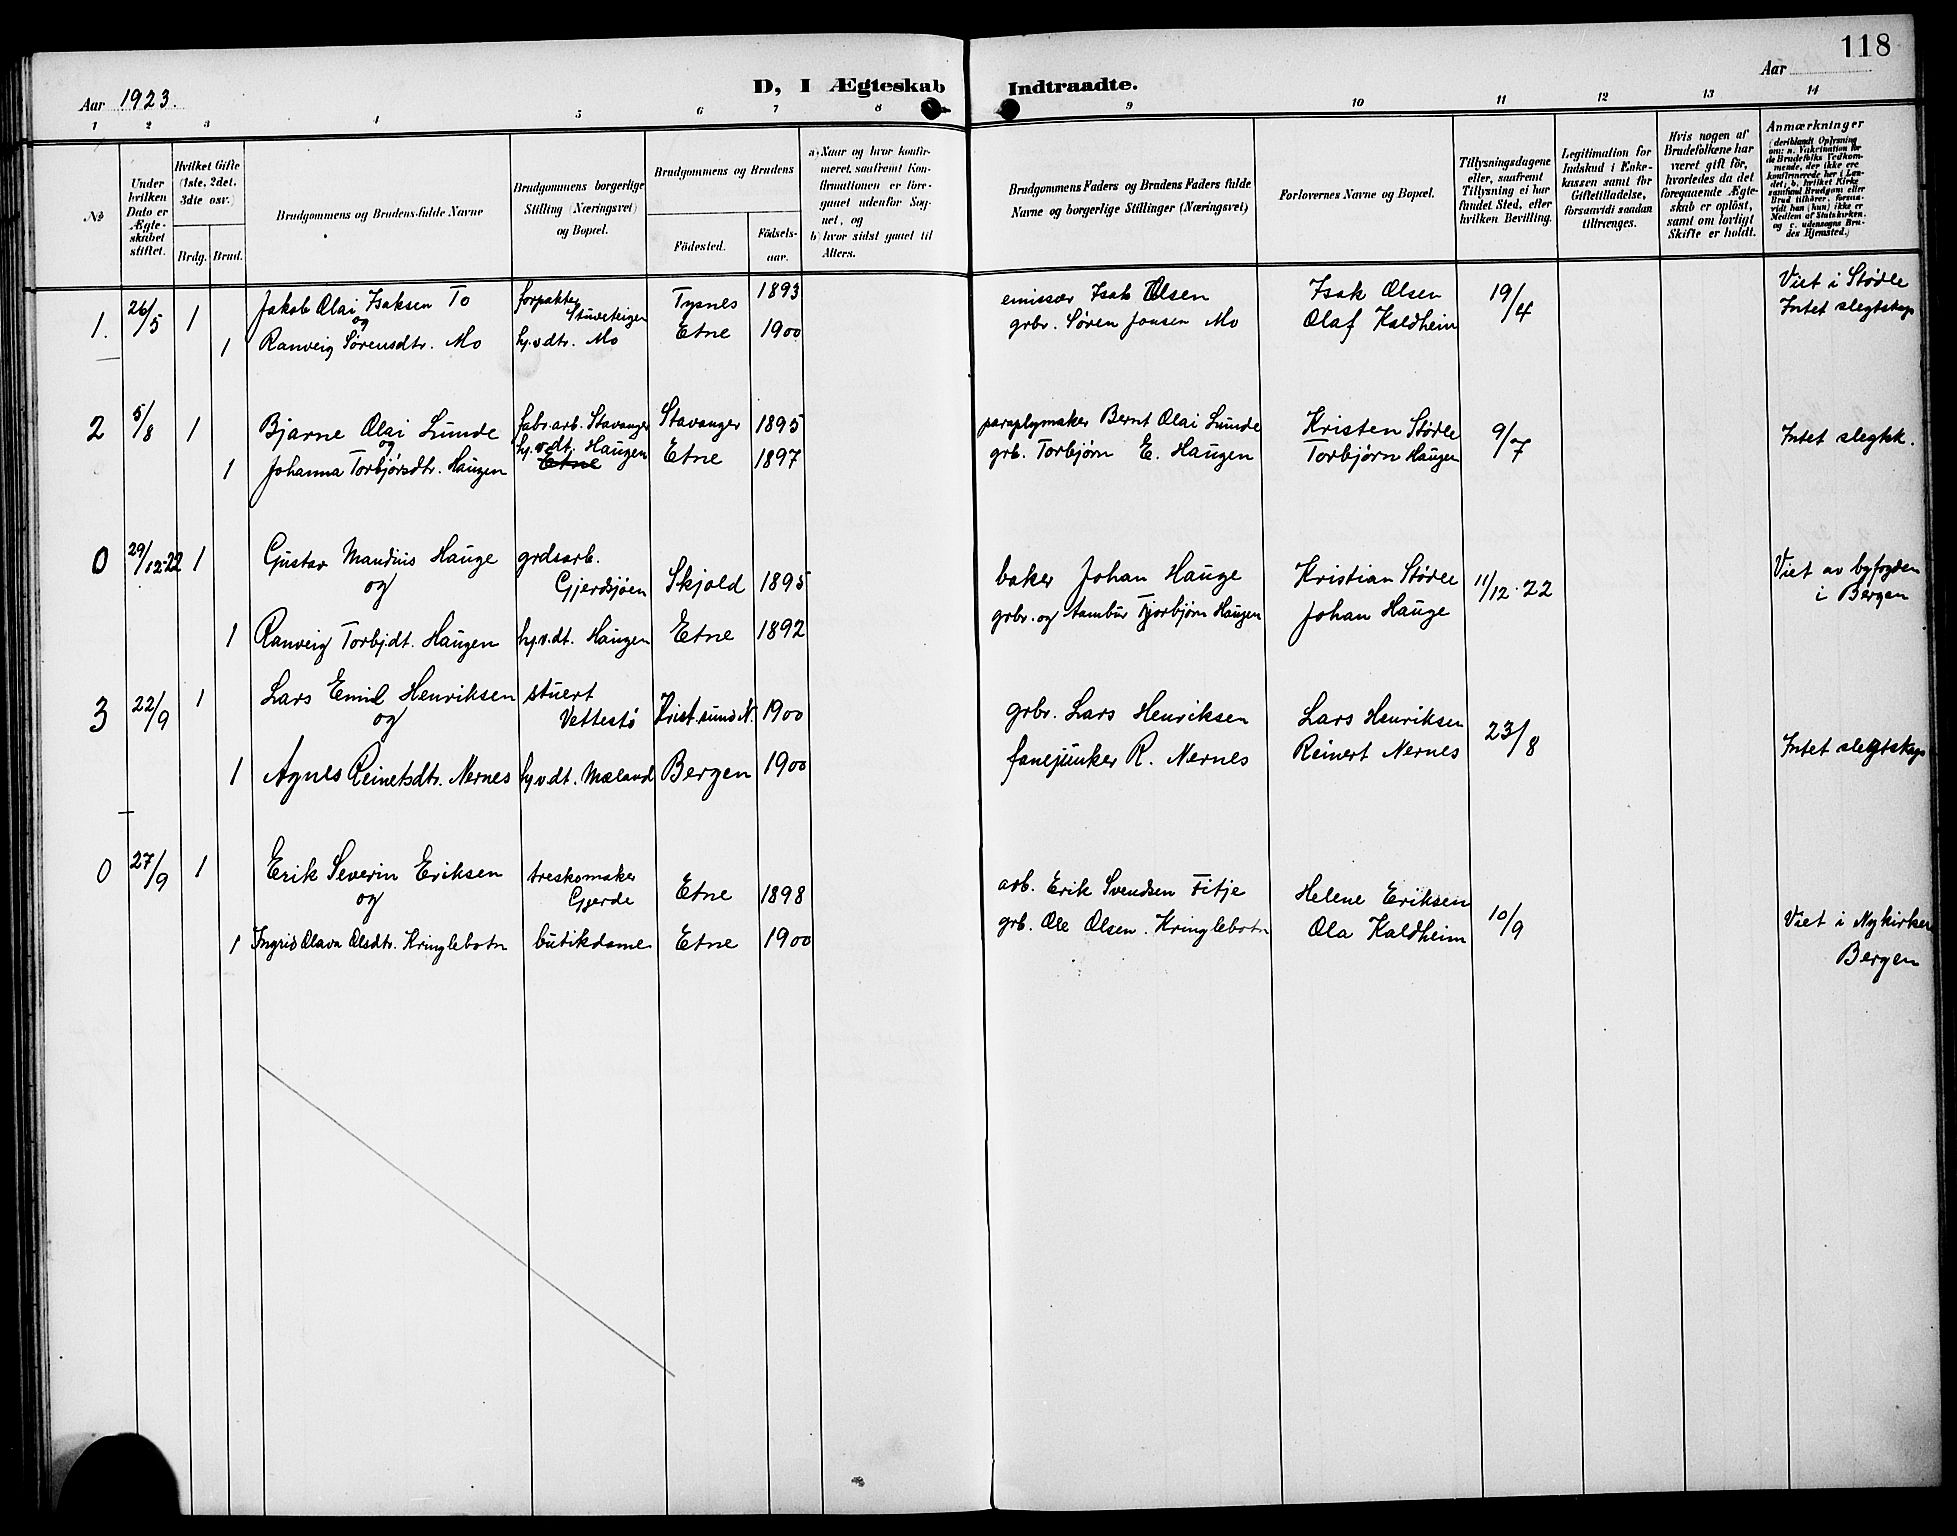 118
Aar 1923.
D, I Ægteskab Indtraadte.
Aar
1 2 3 4 5 6 7 8 9 10 11 12 13 14
No
Under hvilken Dato er Ægteskabet stiftet.
Hvilket Gifte (1ste, 2det, 3die osv.)
Brdg. Brud.
Brudgommens og Brudens fulde Navne
Brudgommens borgerlige Stilling (Næringsvei) og Bopæl.
Brudgommens og Brudens
Fødested. Fødselsaar.
a) Naar og hvor konfirmeret, saafremt Konfirmationen er foregaaet udenfor Sognet, og
b) hvor sidst gaaet til Alters.
Brudgommens Faders og Brudens Faders fulde Navne og borgerlige Stillinger (Næringsvei)
Forlovernes Navne og Bopæl.
Tillysningsdagene eller, saafremt Tillysning ei har fundet Sted, efter hvilken Bevilling.
Legitimation for Indskud i Enkekassen samt for Giftetilladelse, forsaavidt saadan tiltrænges.
Hvis nogen af Brudefolkene har været gift før, hvorledes da det foregaaende Ægteskab er opløst, samt om lovligt Skifte er holdt.
Anmærkninger (deriblandt Oplysning om: a. Vakcination for de Brudefolks Vedkommende, der ikke ere konfirmerede her i Landet; b. hvilket Kirkesamfund Brudgom eller Brud tilhører, forsaavidt han (hun) ikke er Medlem af Statskirken, og c. udensogns Brudes Hjemsted.)
1. 26/5 1 Jakob Olai Isaksen To forpakter Stuveteigen Tysnes 1893 emissær Isak Olsen Isak Olsen 19/4 Viet i Stødle
og
1 Ranveig Sørensdtr. Mo hj.v.dtr. Mo Etne 1900 grbr. Søren Jonsen Mo Olaf Kaldheim Intet slegtskap
2 5/8 1 Bjarne Olai Lunde fabr.arb. Stavanger Stavanger 1895 paraplymaker Bernt Olai Lunde Kristen Stødle 9/7 Intet slegtsk.
og
1 Johanna Torbjørsdtr. Haugen hj.v.dt. Haugen Etne Etne 1897 grb. Torbjørn E. Haugen Torbjørn Haugen
0 29/12-22 1 Gustav Mandius Hauge grdsarb. Gjerdsjøen Skjold 1895 baker Johan Hauge Kristian Stødle 11/12.22 Viet av byfogden i Bergen
og
1 Ranveig Torbj.dt. Haugen hj.v.dt. Haugen Etne 1892 grbr. og tambur Tjorbjørn Haugen Johan Hauge
3 22/9 1 Lars Emil Henriksen stuert Vettestø Krist.sund N. 1900 grbr. Lars Henriksen Lars Henriksen 23/8 Intet slegtskap
og
1 Agnes Reinetsdtr. Nernes hj.v.dt. Mæland Bergen 1900 fanejunker R. Nernes Reinert Nernes
0 27/9 1 Erik Severin Eriksen treskomaker Gjerde Etne 1898 arb. Erik Svendsen Fitje Helene Eriksen 10/9 Viet i Nykirken Bergen
og
1 Ingrid Olava Olsdtr. Kringlebotn butikdame Etne 1900 grb. Ole Olsen Kringlebotn Ola Kaldheim